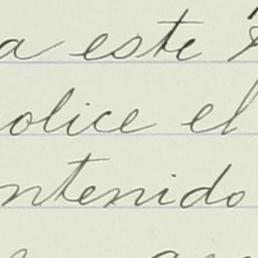 a este
olice el
ntenido